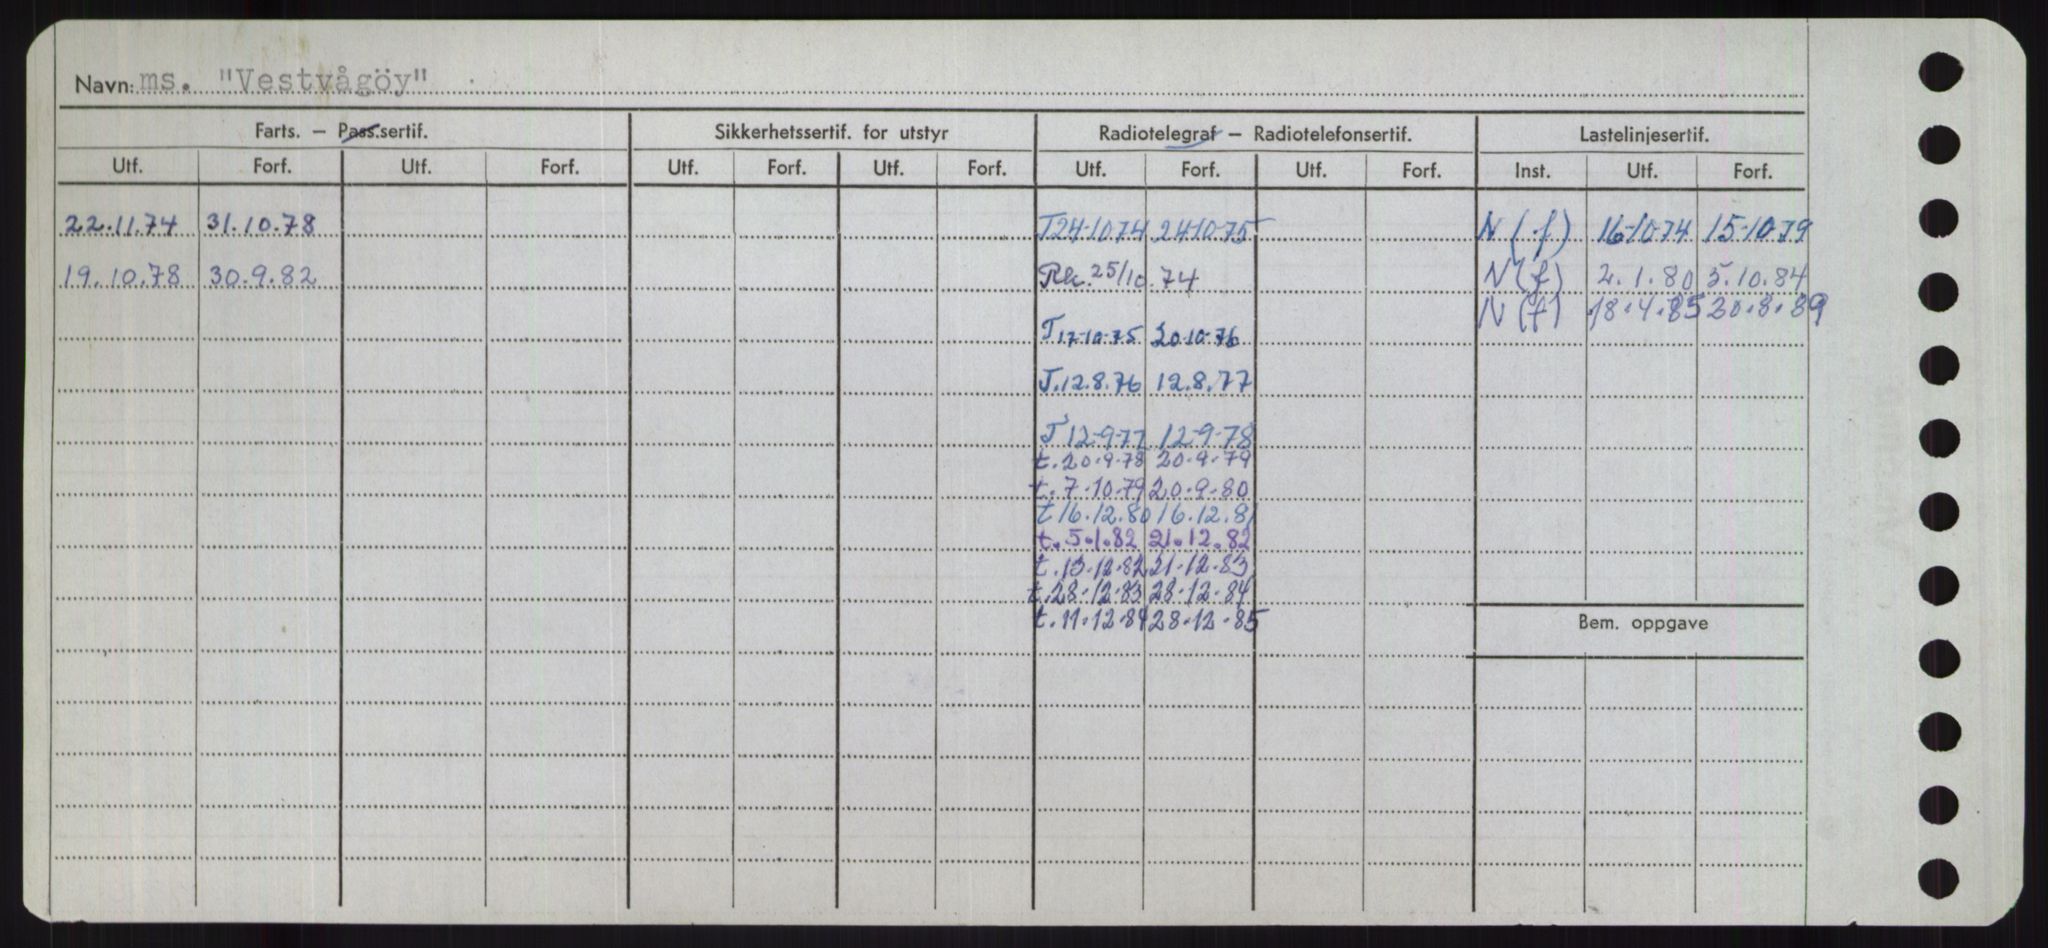 Navn: ms. "Vestvågöy"
Farts. – Pass.sertif. Sikkerhetssertif. for utstyr Radiotelegraf – Radiotelefonsertif. Lastelinjesertif.
Utf. Forf. Utf. Forf. Utf. Forf. Utf. Forf. Utf. Forf. Utf. Forf. Inst. Utf. Forf.
22.11.74 31.10.78 T 24-10 74 24-10-75 N (f) 16-10 74 15-10-79
19.10.78 30.9.82 Rk. 25/10.74 N (f) 2.1.80 5.10.84
N (f) 18.4.85 30.8.89
T 17-10-75 20-10-76
T. 12.8.76 12.8.77
T 12-9-77 12-9-78
t. 20.9.78 20.9.79
t. 7.10.79 20.9.80
t 16.12.80 16.12.81
t. 5.1.82 21.12.82
t. 13.12.82 21.12.83
t. 28.12.83 28.12.84
t. 11.12.84 28.12.85
Bem. oppgave